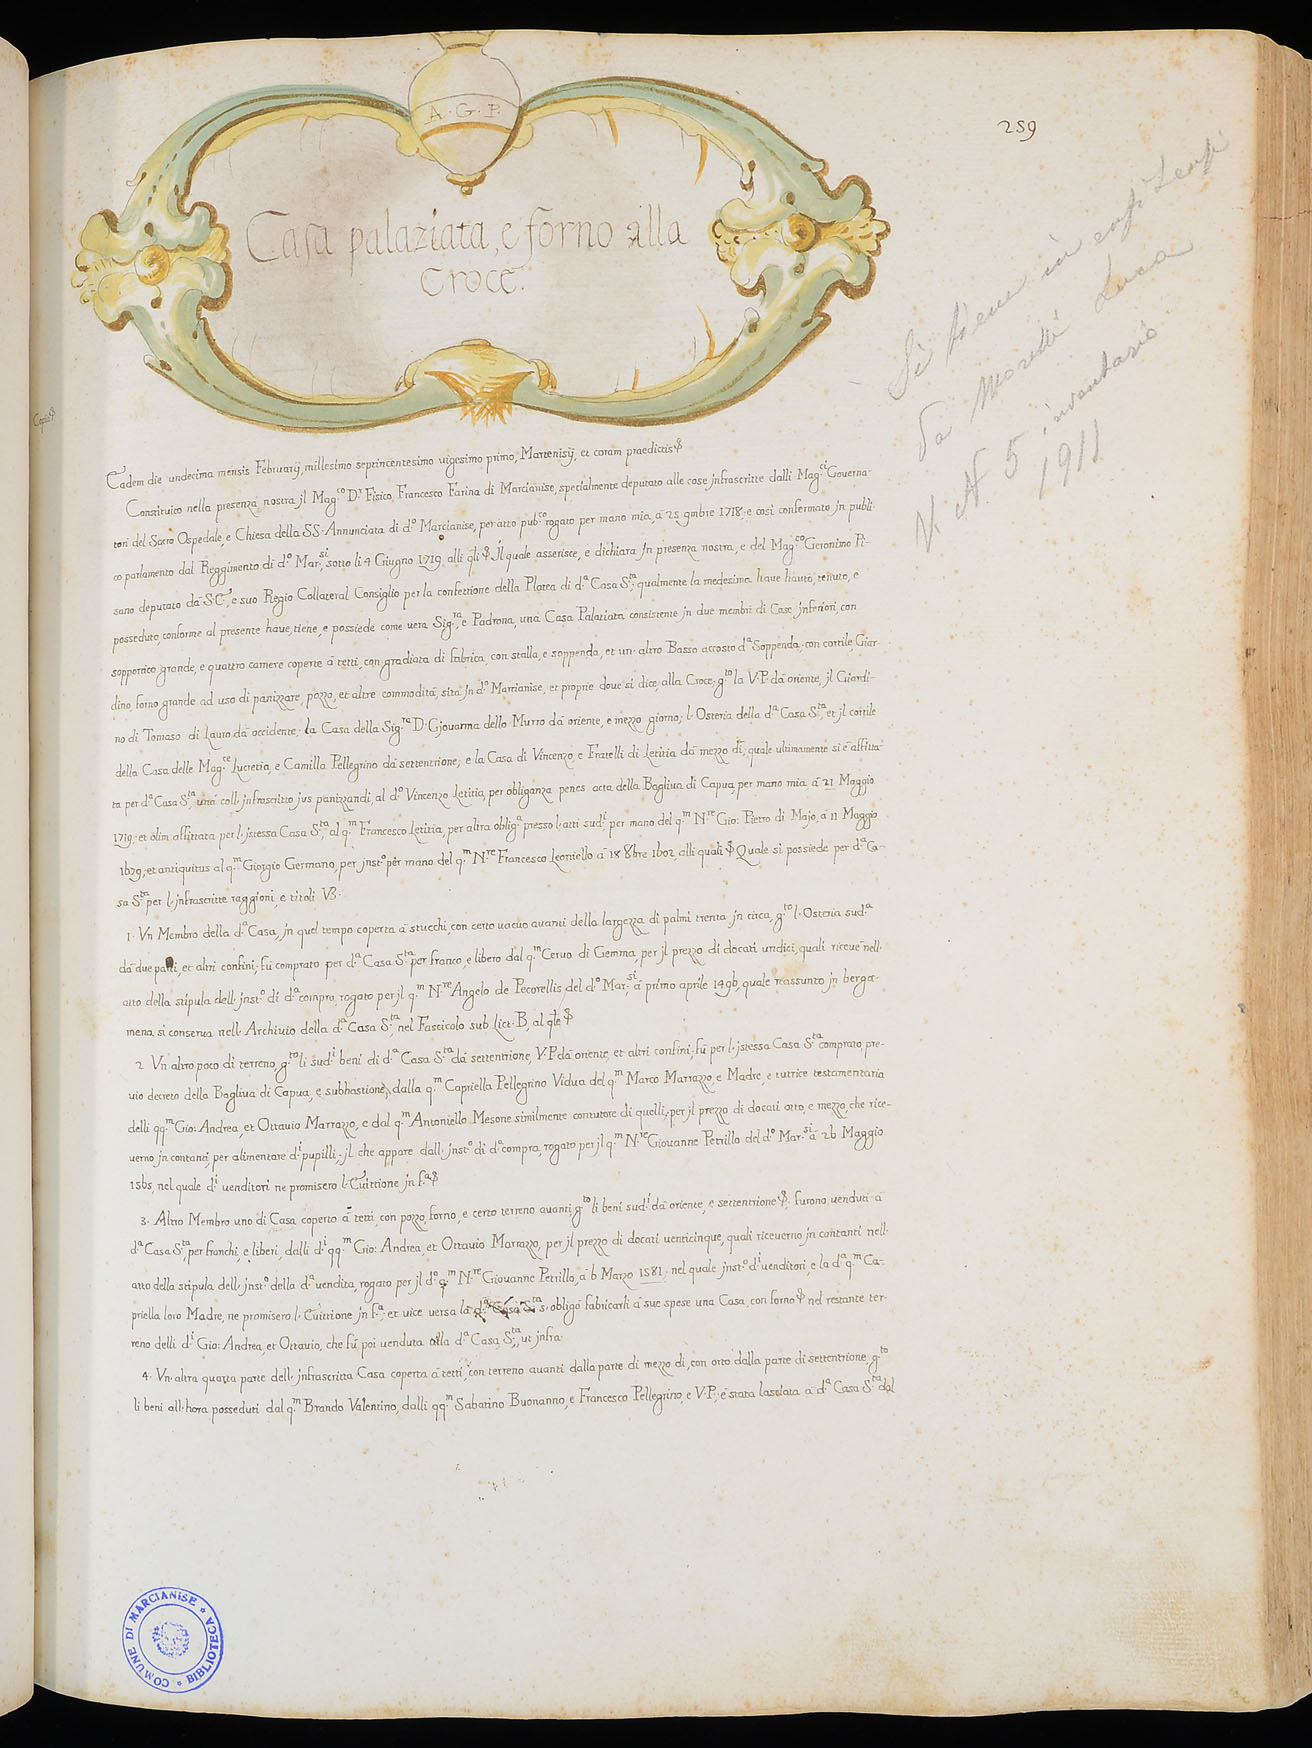 259
A·G·P·
Casa palaziata, e forno alla
Croce.
Si tiene in
da Moretti Luca
V. N. 5 inventario
1911
Eadem die undecima mensis Februarij, millesimo septincentesimo vigesimo primo, Martenisij, et coram praedictis
Constituito nella presenza nostra jl Mag.co D.r Fisico, Francesco Farina di Marcianise, specialmente deputato alle cose jnfrascritte dalli Mag.ci Governa-
tori del Sacro Ospedale, e Chiesa della SS. Annunciata di d.o Marcianise, per atto pub.co rogato per mano mia, à 25 9mbre 1718, e così confermato jn publi-
co parlamento dal Reggimento di d.o Mar.si, sotto li 4 Giugno 1719, alli q̃li Jl quale asserisce, e dichiara jn presenza nostra, e del Mag.co Geronimo Pi-
sano deputato dà S.C., e suo Regio Collateral Consiglio per la confettione della Platea di d.a Casa S.ta, qualmente la medesima have hauto, tenuto, e
posseduto, conforme al presente have, tiene, e possiede come vera Sig.ra, e Padrona, una Casa Palatiata consistente jn due membri di Case jnferiori, con
sopportico grande, e quattro camere coperte à tetti, con gradiata di fabrica, con stalla, e soppenda, et un' altro Basso accosto d.a Soppenda, con cortile, Giar-
dino, forno grande ad uso di panizzare, pozzo, et altre commodità, sita jn d.o Marcianise, et proprie dove si dice, alla Croce, g.to la V.P. dà oriente, jl Giardi-
no di Tomaso di Lauro dà occidente, la Casa della Sig.ra D. Giovanna dello Murro dà oriente, e mezzo giorno; l'Osteria della d.a Casa S.ta, et jl cortile
della Casa delle Mag.ce Lucretia, e Camilla Pellegrino dà settentrione; e la Casa di Vincenzo, e Fratelli di Letitia dà mezzo dì; quale ultimamente si è affitta-
ta per d.a Casa S.ta, una coll' jnfrascritto jus panizzandi, al d.o Vincenzo Letitia, per obliganza penes acta della Bagliva di Capua, per mano mia à 21 Maggio
1719; et olim affittata per l'jstessa Casa S.ta, al q.m Francesco Letitia, per altra oblig.a presso l'atti sud.i, per mano del q.m N.re Gio: Pietro di Majo, à 11 Maggio
1679; et antiquitus al q.m Giorgio Germano, per jnst.o per mano del q.m N.re Francesco Leoniello à 18 8bre 1602, alli quali Quale si possiede per d.a Ca-
sa S.ta per l'jnfrascritte raggioni, e titoli V3.
1. Vn Membro della d.a Casa, jn quel tempo coperta à stucchi, con certo vacuo avanti della largezza di palmi trenta jn circa, g.to l'Osteria sud.a
dà due parti, et altri confini; fù comprato per d.a Casa S.ta per franco, e libero dal q.m Cervo di Gemma, per jl prezzo di docati undici, quali ricevè nell'
atto della stipula dell' jnst.o di d.a compra, rogato per jl q.m N.re Angelo de Pecorellis del d.o Mar.si à primo aprile 1496, quale reassunto jn berga-
mena si conserva nell' Archivio della d.a Casa S.ta, nel Fascicolo sub Lict. B, al q̃le
2. Vn altro poco di terreno, g.to li sud.i beni di d.a Casa S.ta dà settentrione, V.P. dà oriente, et altri confini, fù per l'jstessa Casa S.ta comprato, pre-
vio decreto della Bagliva di Capua, e subhastione, dalla q.m Capriella Pellegrino Vidua del q.m Marco Marrazzo, e Madre, e tutrice testamentaria
delli qq.m Gio: Andrea, et Ottavio Marrazzo, e dal q.m Antoniello Mesone similmente contutore di quelli, per jl prezzo di docati otto, e mezzo, che rice-
verno jn contanti, per alimentare d.i pupilli; jl che appare dall' jnst.o di d.a compra, rogato per jl q.m N.re Giovanne Petrillo del d.o Mar.si à 26 Maggio
1565, nel quale d.i venditori ne promisero l'Euittione jn f.a
3. Altro Membro uno di Casa coperto à tetti, con pozzo, forno, e certo terreno avanti, g.to li beni sud.i dà oriente, e settentrione, furono venduti à
d.a Casa S.ta, per franchi, e liberi, dalli d.i qq.m Gio: Andrea, et Ottavio Marrazzo, per jl prezzo di docati venticinque, quali riceverno jn contanti nell'
atto della stipula dell' jnst.o della d.a vendita, rogato per jl d.o q.m N.re Giovanne Petrillo, à 6 Marzo 1581, nel quale jnst.o d.i venditori, e la d.a q.m Ca-
priella loro Madre, ne promisero l'Euittione jn f.a; et vice versa la d.a Casa S.ta s'obligò fabricarli à sue spese una Casa, con forno nel restante ter-
reno delli d.i Gio: Andrea, et Ottavio, che fù poi venduta alla d.a Casa S.ta, ut jnfra.
4. Vn' altra quarta parte dell' jnfrascritta Casa coperta à tetti, con terreno avanti dalla parte di mezzo dì, con orto dalla parte di settentrione, g.to
li beni all' hora posseduti dal q.m Brando Valentino, dalli qq.m Sabatino Buonanno, e Francesco Pellegrino, e V.P., è stata lasciata à d.a Casa S.ta dal
COMUNE DI MARCIANISE * BIBLIOTECA *